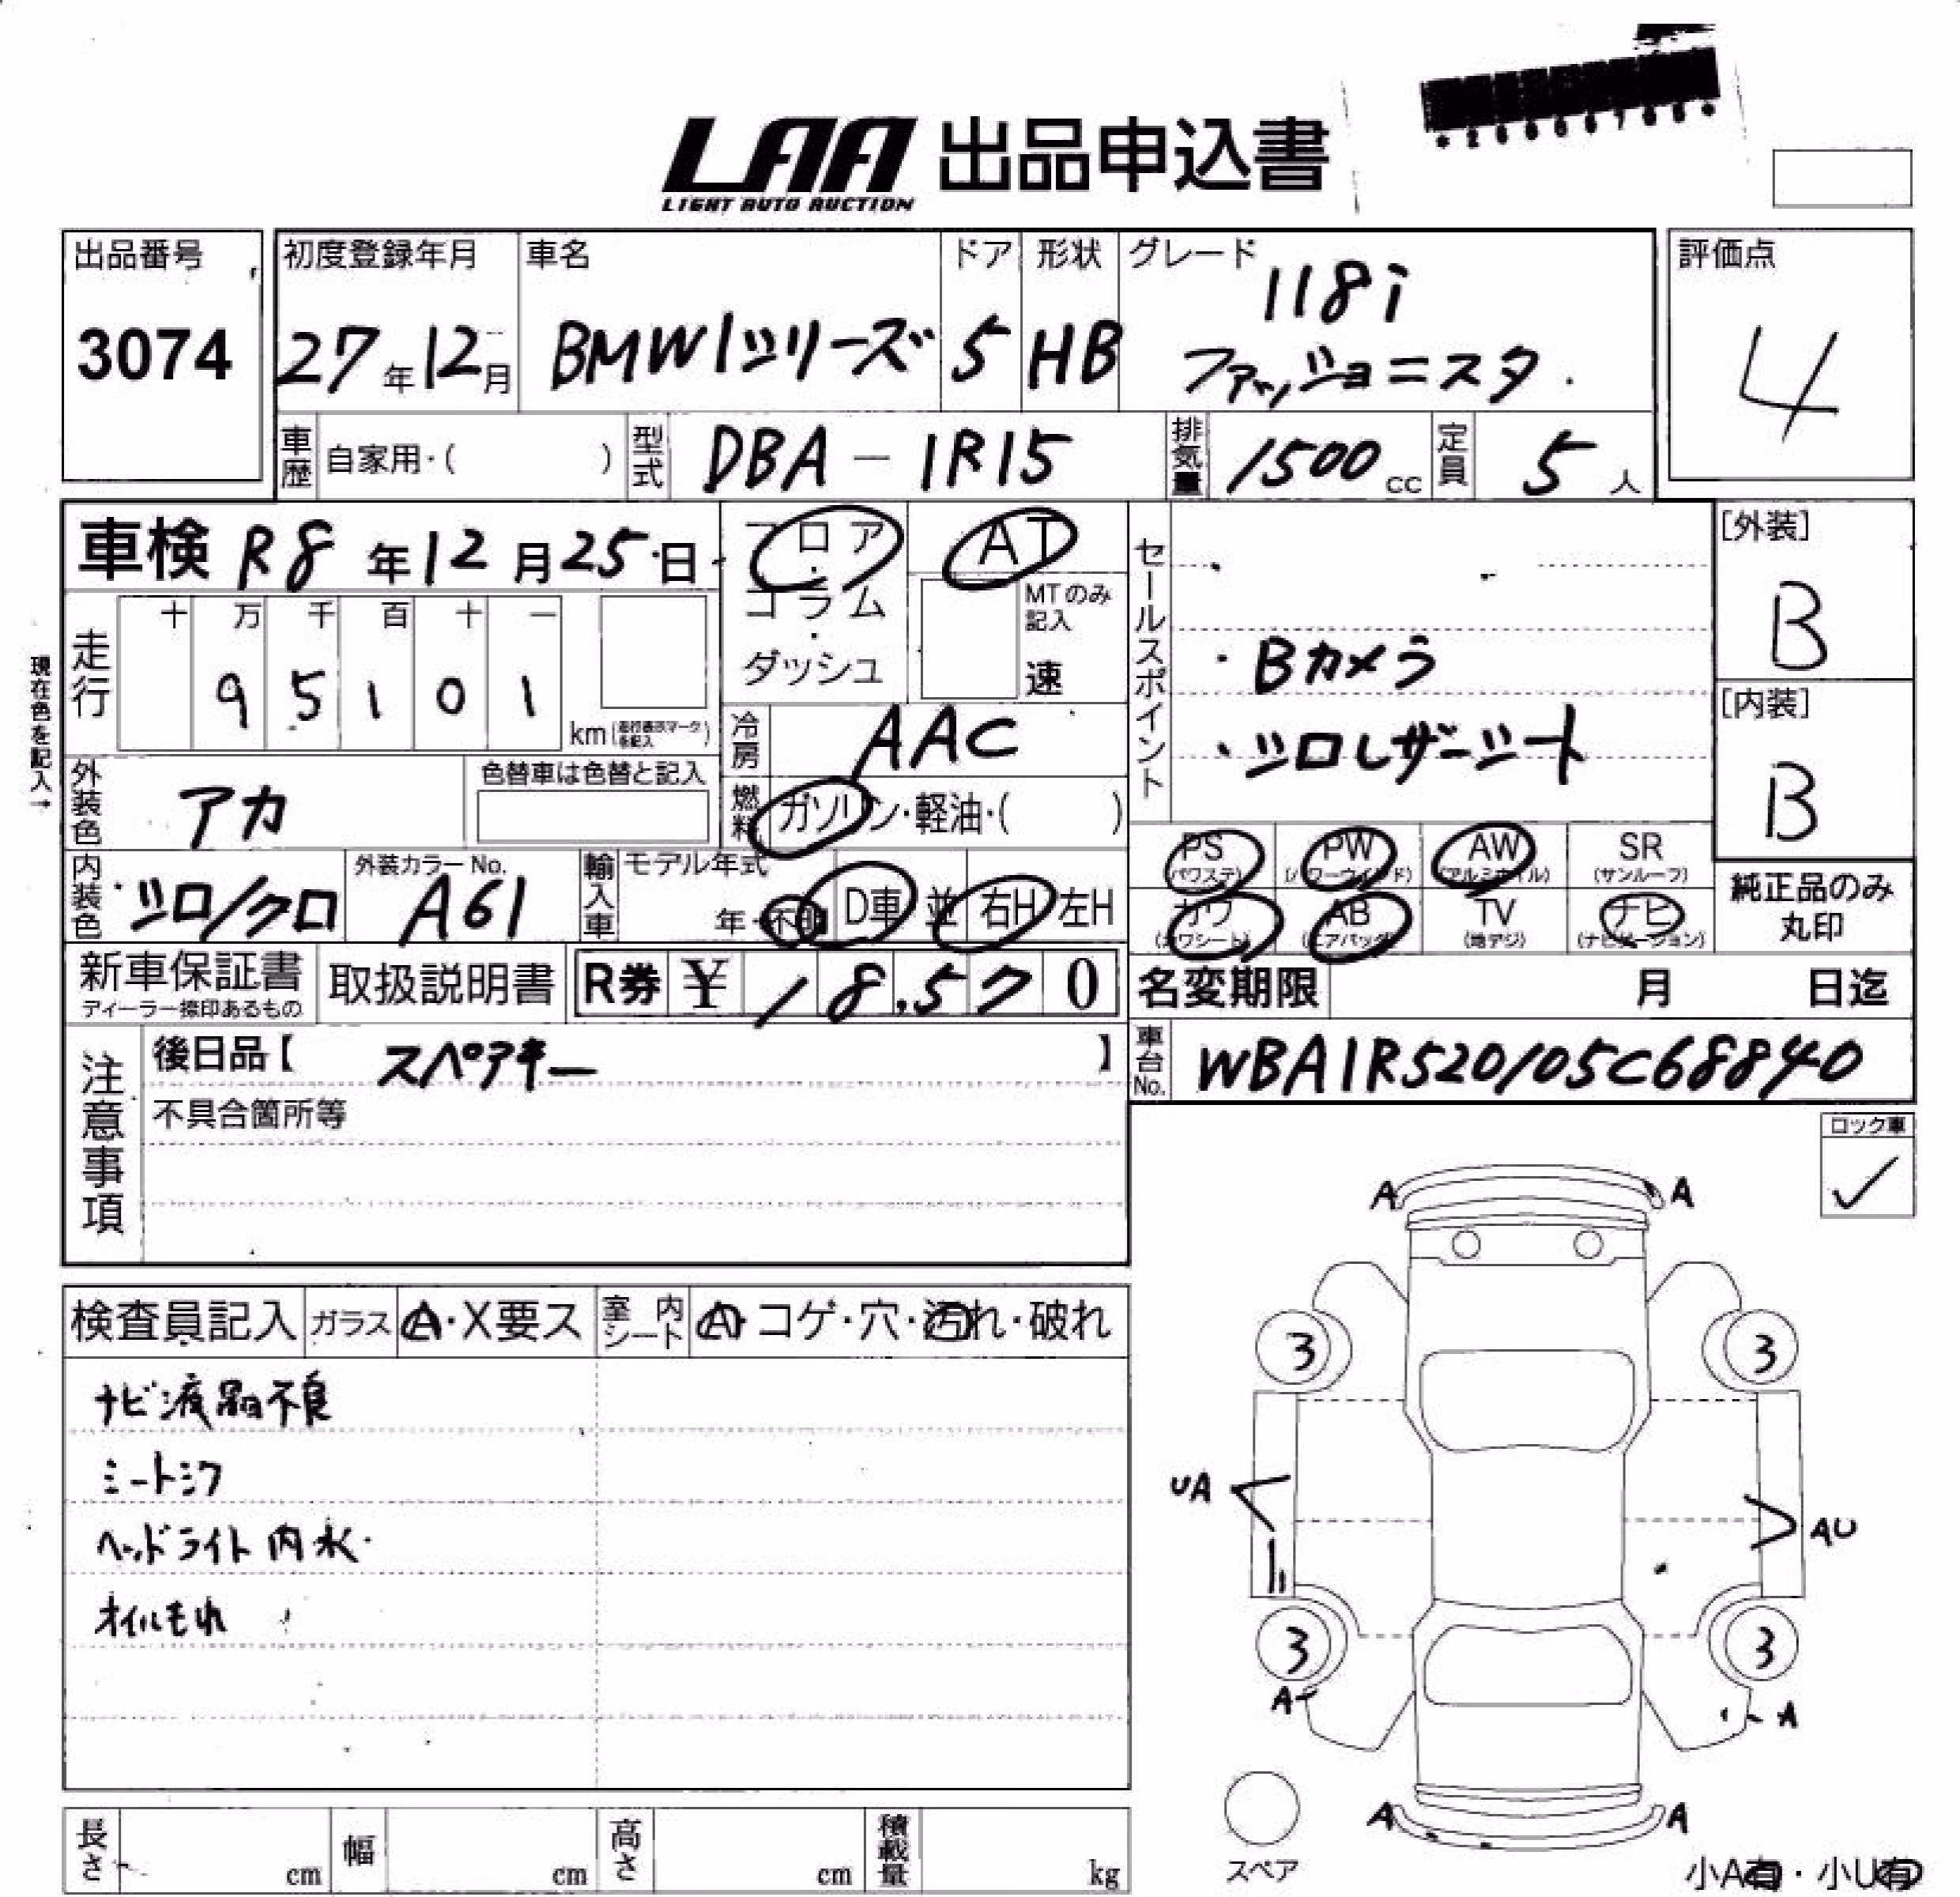 LAA 出品申込書
LIGHT AUTO AUCTION
出品番号
3074
初度登録年月
27年12月
車名
BMW1シリーズ
ドア
5
形状
HB
グレード
118i
ファッショニスタ.
評価点
4
車歴 自家用・( )
型式 DBA-1R15
排気量 1500cc
定員 5人
車検 R8年12月25日
フロア・コラム・ダッシュ
AT
MTのみ記入
速
現在色を記入→
走行
十 万 千 百 十 一
9 5 1 0 1
km
冷房 AAC
燃料 ガソリン・軽油・( )
外装色 アカ
色替車は色替と記入
内装色 シロ/クロ
外装カラーNo.
A61
輸入車 モデル年式
年・不明 D車 並 右H 左H
セールスポイント
・Bカメラ
・シロレザーシート
[外装]
B
[内装]
B
PS (パワステ)
PW (パワーウインド)
AW (アルミホイル)
SR (サンルーフ)
カワ (カワシート)
AB (エアバック)
TV (地デジ)
ナビ (ナビゲーション)
純正品のみ
丸印
新車保証書
ディーラー捺印あるもの
取扱説明書
R券 ¥ 18,570
名変期限 月 日迄
車台No. WBA1R520105C68840
注意事項
後日品【 スペアキー 】
不具合箇所等
ロック車
✓
検査員記入 ガラス A・X要ス
室内シート A・コゲ・穴・汚れ・破れ
ナビ液晶不良
シートシワ
ヘッドライト内水・
オイルもれ
A A
3 3
UA AU
3 3
A A
A A
スペア
小A有・小U有
長さ cm
幅 cm
高さ cm
積載量 kg